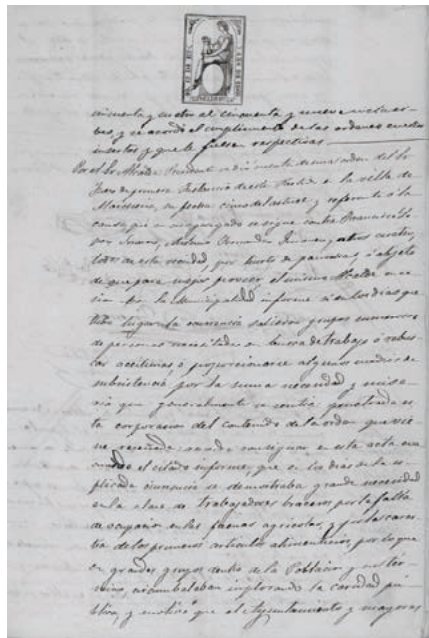 cincuenta y cuatro al cincuenta y nueve inclusi-
ves, y se acordó el cumplimiento de las ordenes en ellos
insertas y que le fuesen respectivas.
Por el Sr. Alcalde Presidente se dió cuenta de una orden del Sr.
Juez de primera Instancia de este Partido a la villa de
su fecha cinco del actual y referente á la
causa que en su juzgado se sigue contra Francisco
Antonio Jimenez y otros cuatro,
todos de esta vecindad, por hurto de á objeto
de que para mejor proveer el mismo Alcalde en
la Municipalidad informe si en los dias que
tubo lugar la ocurrencia salieron grupos numerosos
de personas necesitadas en busca de trabajo ó rebus-
car ó proporcionarse algunos medios de
subsistencia por la suma necesidad y mise-
ria que generalmente se sentia; penetrada es-
ta corporacion del contenido de la orden que vie-
ne reseñada: acordó consignar en esta acta eva-
cuando el citado informe, que en los dias de la es-
plicada ocurrencia se demostraba grande necesidad
en la clase de trabajadores braceros por la falta
de ocupacion en las faenas agricolas, y por la cares-
tia de los primeros articulos alimenticios, por lo que
en grandes grupos dentro de la Poblacion y en su ter-
mino, deambulaban implorando la caridad pú-
blica, y motivó que el Ayuntamiento y mayores